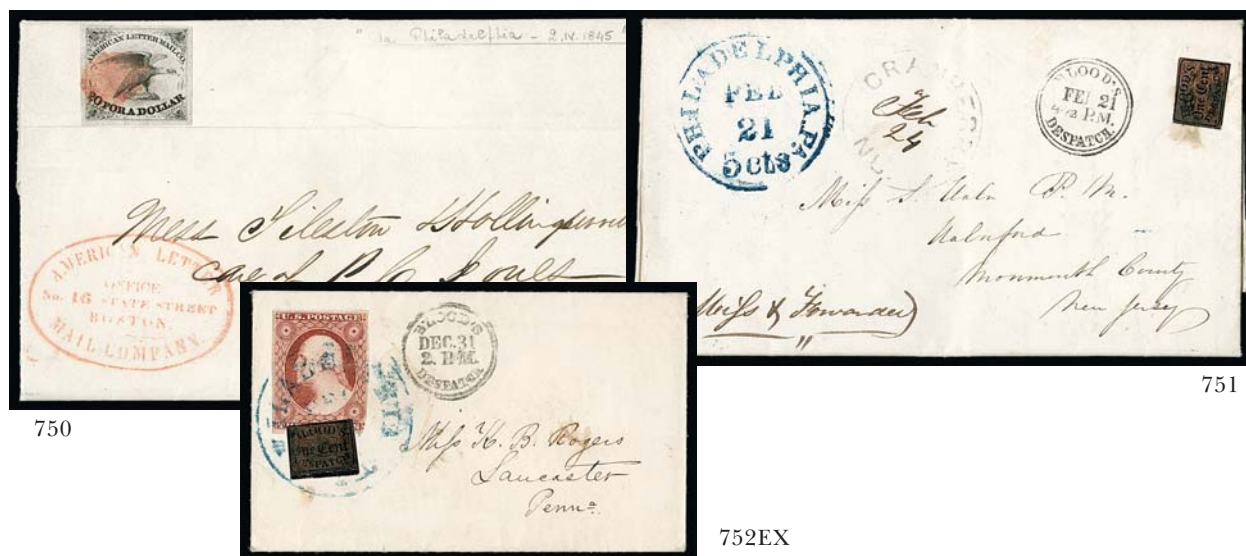 AMERICAN LETTER MAIL CO.
20 FOR A DOLLAR
Philadelphia - 2.IV.1845"
Mess Tileston & Hollingsworth
care of
AMERICAN LETTER
OFFICE
No. 16 STATE STREET
BOSTON.
MAIL COMPANY.
750
PHILADELPHIA. Pa
FEB
21
5 cts
CRANBERRY
N.J.
Feb
24
BLOOD'S
FEB 21
4 1/2 P.M.
DESPATCH.
BLOOD'S
One Cent
DESPATCH
Miss S. Waln P. M.
Walnford
Monmouth County
New Jersey
(Miss & Forwarded)
751
U.S. POSTAGE
BLOOD'S
DEC. 31
2. P.M.
DESPATCH
BLOOD'S
One Cent
DESPATCH
Miss K. B. Rogers
Lancaster
Penna.
752EX